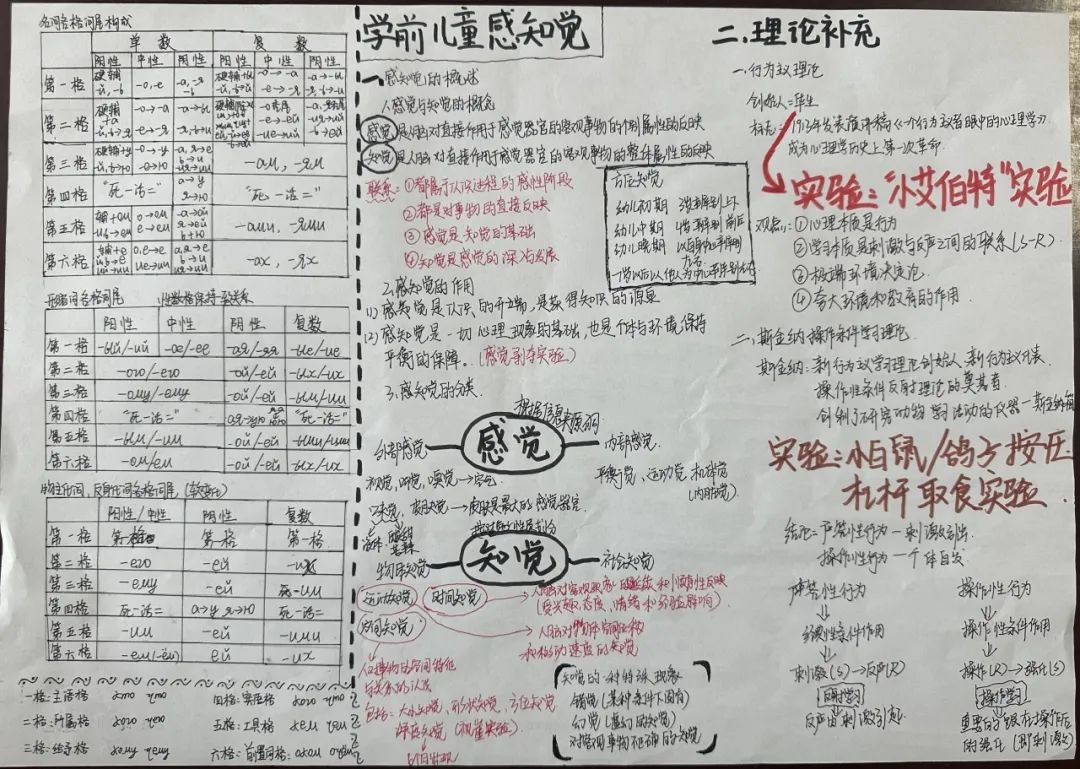 名词各格词尾构成
单数 复数
阳性 中性 阴性 阳性 中性 阴性
第一格 硬辅 -й, -ь -о, -е -а, -я -ь -о→-а е→-я
第二格 硬辅+а -о→-а -а→-ы
第三格 硬辅+у -о→у -ам, -ям
第四格 "死-活=" а→у я→ю "死-活="
第五格 辅+ом о→ом е→ем -ами, -ями
第六格 辅+е о,е→е -ах, -ях
形容词各格词尾 性数格保持一致关系
阳性 中性 阴性 复数
第一格 -ый/-ий -ое/-ее -ая/-яя -ые/-ие
第二格 -ого/-его -ой/-ей -ых/-их
第三格 -ому/-ему -ой/-ей -ым/-им
第四格 "死-活=" "死-活="
第五格 -ым/-им -ой/-ей -ыми/-ими
第六格 -ом/ем -ой/-ей -ых/-их
物主代词,反身代词各格词尾
阳性/中性 阴性 复数
第一格 第一格 第一格 第一格
第二格 -его -ей -их
第三格 -ему -ей -им
第四格 死-活= а→у я→ю 死-活=
第五格 -им -ей -ими
第六格 -ем(-ём) ей -их
一格:主语格 кто что 四格:宾语格 кого что
二格:所属格 кого чего 五格:工具格 кем чем
三格:给予格 кому чему 六格:前置词格: о ком о чём
学前儿童感知觉
一.感知觉的概述
1.感觉与知觉的概念
感觉 是人脑对直接作用于感觉器官的客观事物的个别属性的反映
知觉 是人脑对直接作用于感觉器官的客观事物的整体属性的反映
联系:①都属于认识过程的感性阶段
②都是对事物的直接反映
③感觉是知觉的基础
④知觉是感觉的深入与发展
方位知觉
幼儿初期 辨别上下
幼儿中期 辨别前后
幼儿晚期 以自身为中心辨别左右
2.感知觉的作用
(1)感知觉是认识的开端,是获得知识的源泉
(2)感知觉是一切心理现象的基础,也是个体与环境保持
平衡的保障。(感觉剥夺实验)
3.感知觉的分类
根据信息来源不同
外部感觉 感觉 内部感觉
视觉,听觉,嗅觉→空气 平衡觉,运动觉,机体觉
(内脏觉)
味觉,肤觉→皮肤是最大的感觉器官
物体知觉 知觉 社会知觉
运动知觉 时间知觉
→人脑对客观现象的延续和顺序性反映
(受兴趣,态度,情绪和经验影响)
空间知觉
→人脑对物体空间位移
和移动速度的知觉
人对事物的空间特征
与关系的认识
包括:大小知觉,形状知觉,方位知觉
深度知觉(视崖实验)
知觉的一种特殊现象
错觉(某种条件下固有)
幻觉(虚幻的知觉)
对客观事物不正确的知觉
二.理论补充
一.行为主义理论
创始人:华生
标志:1913年发表演讲稿《一个行为主义者眼中的心理学》
成为心理学历史上第一次革命.
实验:"小艾伯特"实验
观点:①心理本质是行为
②学习本质是刺激与反应之间的联系(S-R)
③极端环境决定论
④夸大环境和教育的作用.
二.斯金纳操作条件学习理论.
斯金纳:新行为主义学习理论创始人 新行为主义代表
操作性条件反射理论的奠基者
创制了研究动物学习活动的仪器—斯金纳箱
实验:小白鼠/鸽子按压
杠杆取食实验
结论:应答性行为—刺激引出
操作性行为—个体自发
应答性行为 操作性行为
经典性条件作用 操作性条件作用
刺激(S)→反应(R) 操作(R)→强化(S)
反射学习 操作学习
反应由刺激引起. 重要的是跟在操作后
的强化(即刺激)